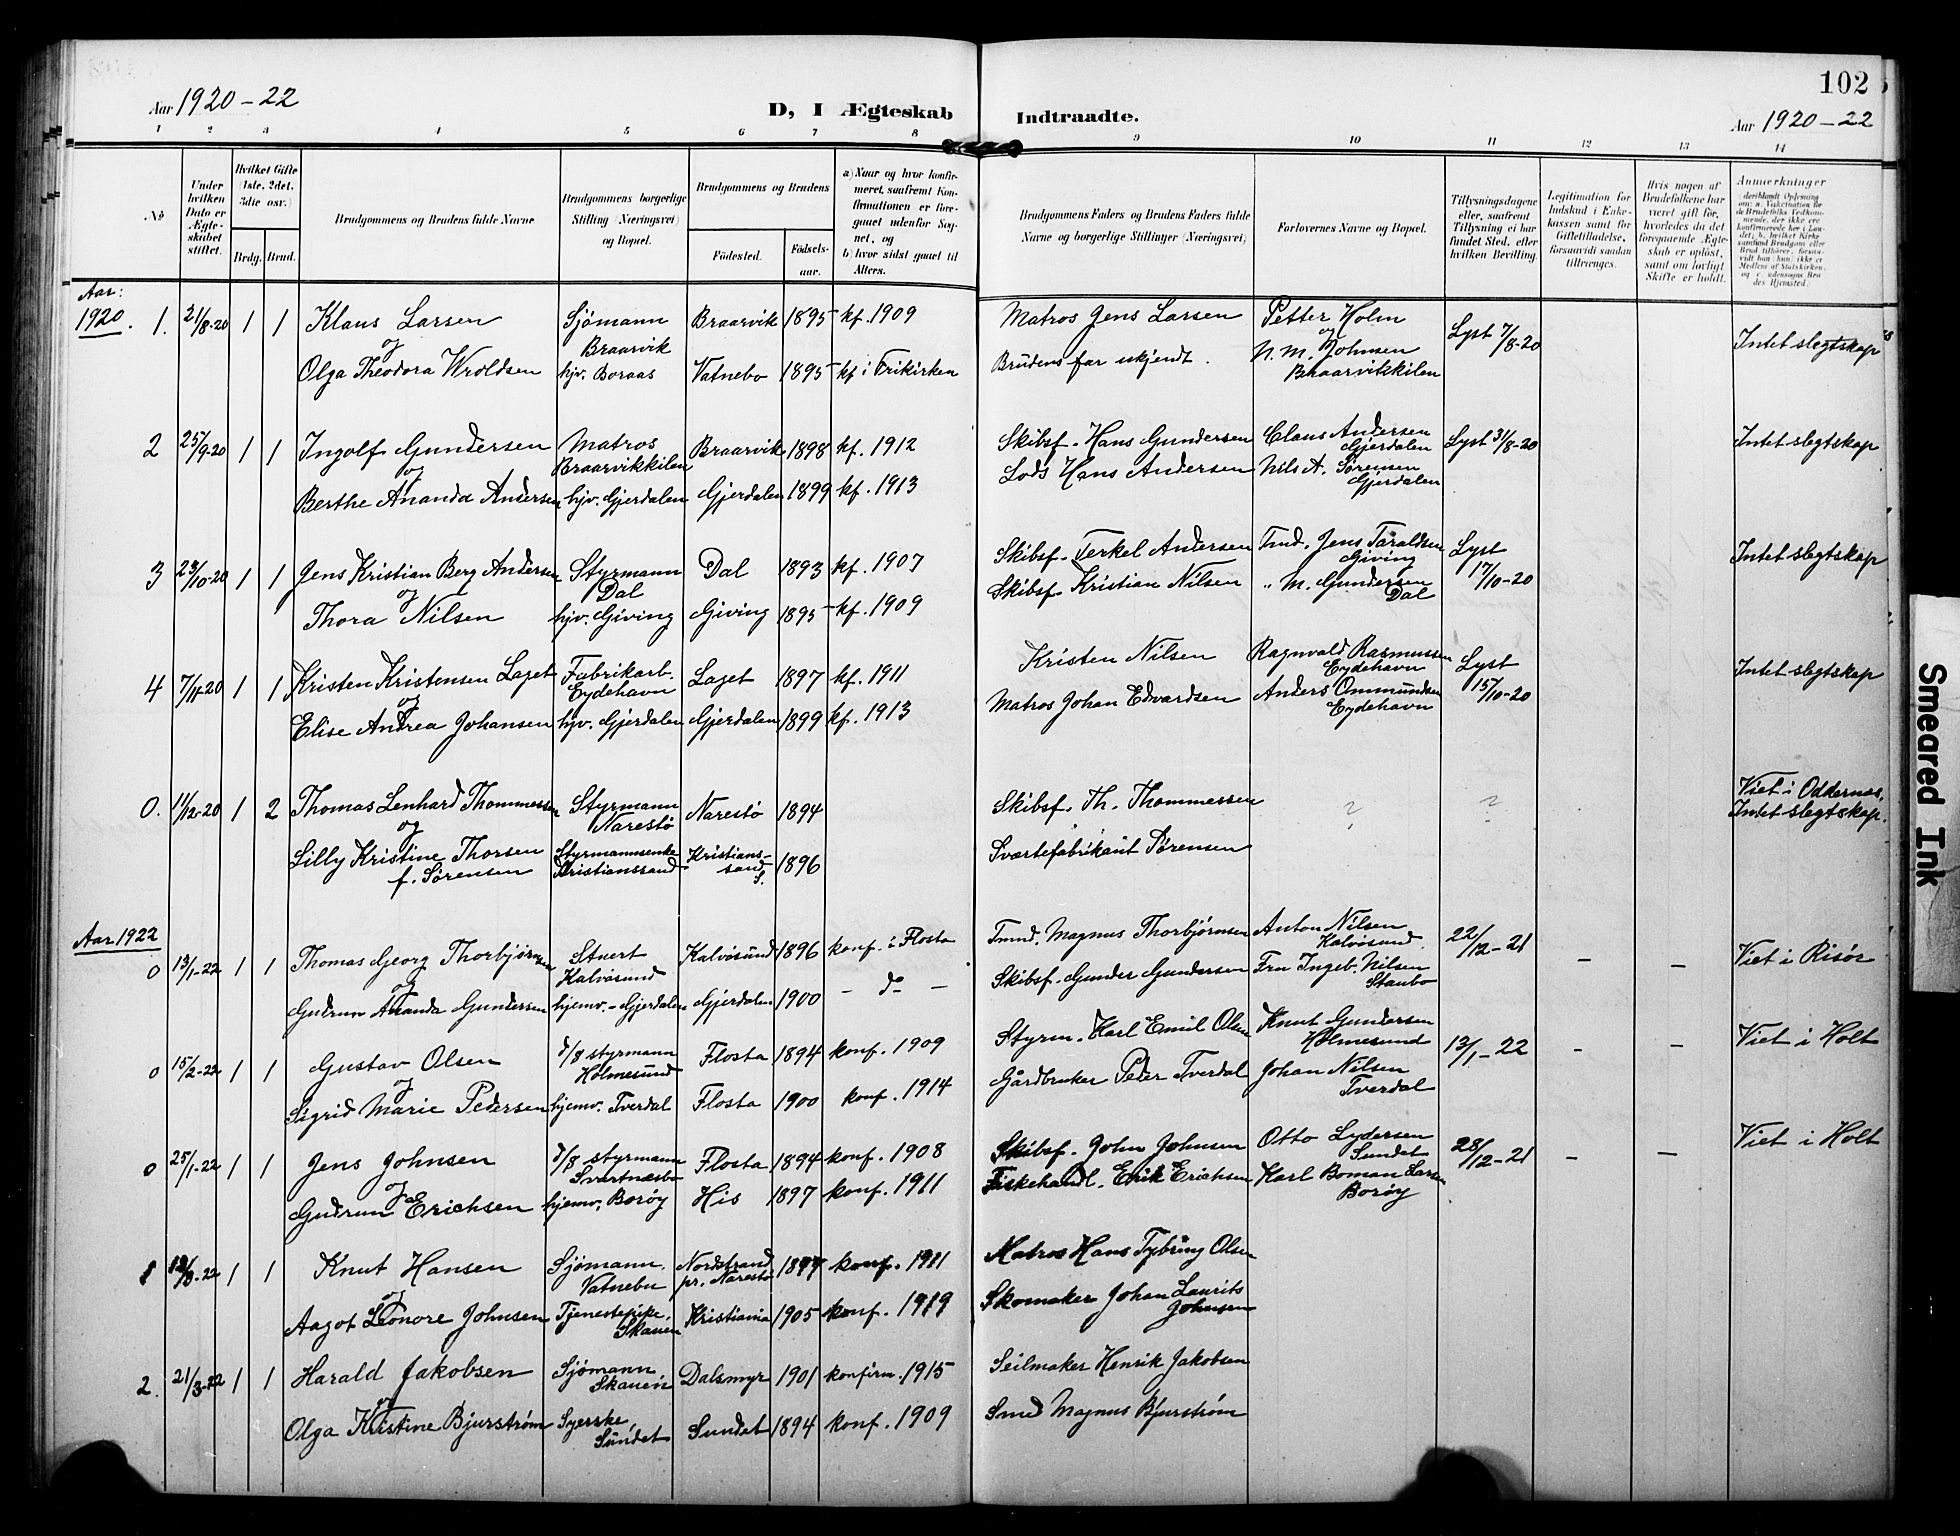 102
Aar 1920-22
D, I Ægteskab Indtraadte.
Aar 1920-22
1 2 3 4 5 6 7 8 9 10 11 12 13 14
No
Under hvilken Dato er Ægteskabet stiftet.
Hvilket Gifte (1ste, 2det, 3die osv.)
Brdg. Brud.
Brudgommens og Brudens fulde Navne
Brudgommens borgerlige Stilling (Næringsvei) og Bopæl.
Brudgommens og Brudens
Fødested. Fødselsaar.
a) Naar og hvor konfirmeret, saafremt Konfirmationen er foregaaet udenfor Sognet, og
b) hvor sidst gaaet til Alters.
Brudgommens Faders og Brudens Faders fulde Navne og borgerlige Stillinger (Næringsvei)
Forlovernes Navne og Bopæl.
Tillysningsdagene eller, saafremt Tillysning ei har fundet Sted, efter hvilken Bevilling.
Legitimation for Indskud i Enkekassen samt for Giftetilladelse, forsaavidt saadan tiltrænges.
Hvis nogen af Brudefolkene har været gift før, hvorledes da det foregaaende Ægteskab er opløst, samt om lovligt Skifte er holdt.
Anmerkninger
Aar:
1920. 1. 21/8-20 1 1 Klaus Larsen Sjømann Braarvik Braarvik 1895 kf. 1909 Matros Jens Larsen Petter Holm Lyst 7/8-20 Intet slegtskap
og
Olga Theodora Wroldsen hjv. Boraas Vatnebo 1895 kf i Frikirken Brudens far ukjendt. og N. M. Johnsen Braarvikkilen
2 25/9-20 1 1 Ingolf Gundersen Matros Braarvikkilen Braarvik 1898 kf. 1912 Skibsf. Hans Gundersen Claus Andersen Gjerdalen Lyst 31/8-20 Intet slegtskap
og
Berthe Ananda Andersen hjv. Gjerdalen Gjerdalen 1899 kf. 1913 Lods Hans Andersen Nils A. Sørensen Gjerdalen
3 23/10-20 1 1 Jens Kristian Berg Andersen Styrmann Dal Dal 1893 kf. 1907 Skibsf. Terkel Andersen Tmd. Jens Taraldsen Giving Lyst 17/10-20 Intet slegtskap
og
Thora Nilsen hjv. Giving Giving 1895 kf. 1909 Skibsf. Kristian Nilsen " M. Gundersen Dal
4 7/11-20 1 1 Kristen Kristensen Laget Fabrikarb. Eydehavn Laget 1897 kf. 1911 Kristen Nilsen Ragnvald Rasmussen Eydehavn Lyst 15/10-20 Intet slegtskap
og
Elise Andrea Johansen hjv. Gjerdalen Gjerdalen 1899 kf. 1913 Matros Johan Edvardsen Anders Ommundsen Eydehavn
0. 11/12-20 1 2 Thomas Lenhard Thommessen Styrmann Narestø Narestø 1894 Skibsf. Th. Thommessen ? ? Viet i Oddernes. Intet slegtskap.
og
Lilly Kristine Thorsen f. Sørensen Styrmannsenke Kristianssand Kristianssand S. 1896 Sværtefabrikant Sørensen
Aar 1922
0 13/1-22 1 1 Thomas Georg Thorbjørnsen Stuert Kalvøsund Kalvøsund 1896 konf. i Flosta Tmnd. Magnus Thorbjørnsen Anton Nilsen Kalvøsund 22/12-21 - - Viet i Risør
og
Gudrun Ananda Gundersen hjemv. - Gjerdalen Gjerdalen 1900 - d - Skibsf. Gunder Gundersen Fru Ingeb. Nilsen Staubo
0 15/2-22 1 1 Gustav Olsen d/s styrmann Holmesund Flosta 1894 konf. 1909 Styrm. Karl Emil Olsen Knut Gundersen Holmesund 13/1-22 - - Viet i Holt
og
Sigrid Marie Pedersen hjemv. Tverdal Flosta 1900 konf. 1914 Gårdbruker Peder Tverdal Johan Nilsen Tverdal
0 25/1-22 1 1 Jens Johnsen d/s styrmann Svartnæsbo Flosta 1894 konf. 1908 Skibsf. John Johnsen Otto Lydersen Sundet 28/12-21 - - Viet i Holt
og
Gudrun Erichsen hjemv. Borøy His 1897 konf. 1911 Fiskehandl. Erik Erichsen Karl Boman Larsen Borøy
1 -22 1 1 Knut Hansen Sjømann. Vatnebu Nordstrand pr. Narestø 1897 konf. 1911 Matros Hans Tybring Olsen
og
Aagot Leonore Johnsen Tjenestepike, Skauen Kristiania 1905 konf. 1919 Skomaker Johan Laurits Johnsen
2. 21/3-22 1 1 Harald Jakobsen Sjømann Skauen Dalsmyr 1901 konfirm. 1915 Seilmaker Henrik Jakobsen
og
Olga Kristine Bjurstrøm Syerske, Sundet Sundet 1894 konf. 1909 Smed Magnus Bjurstrøm
Smeared Ink